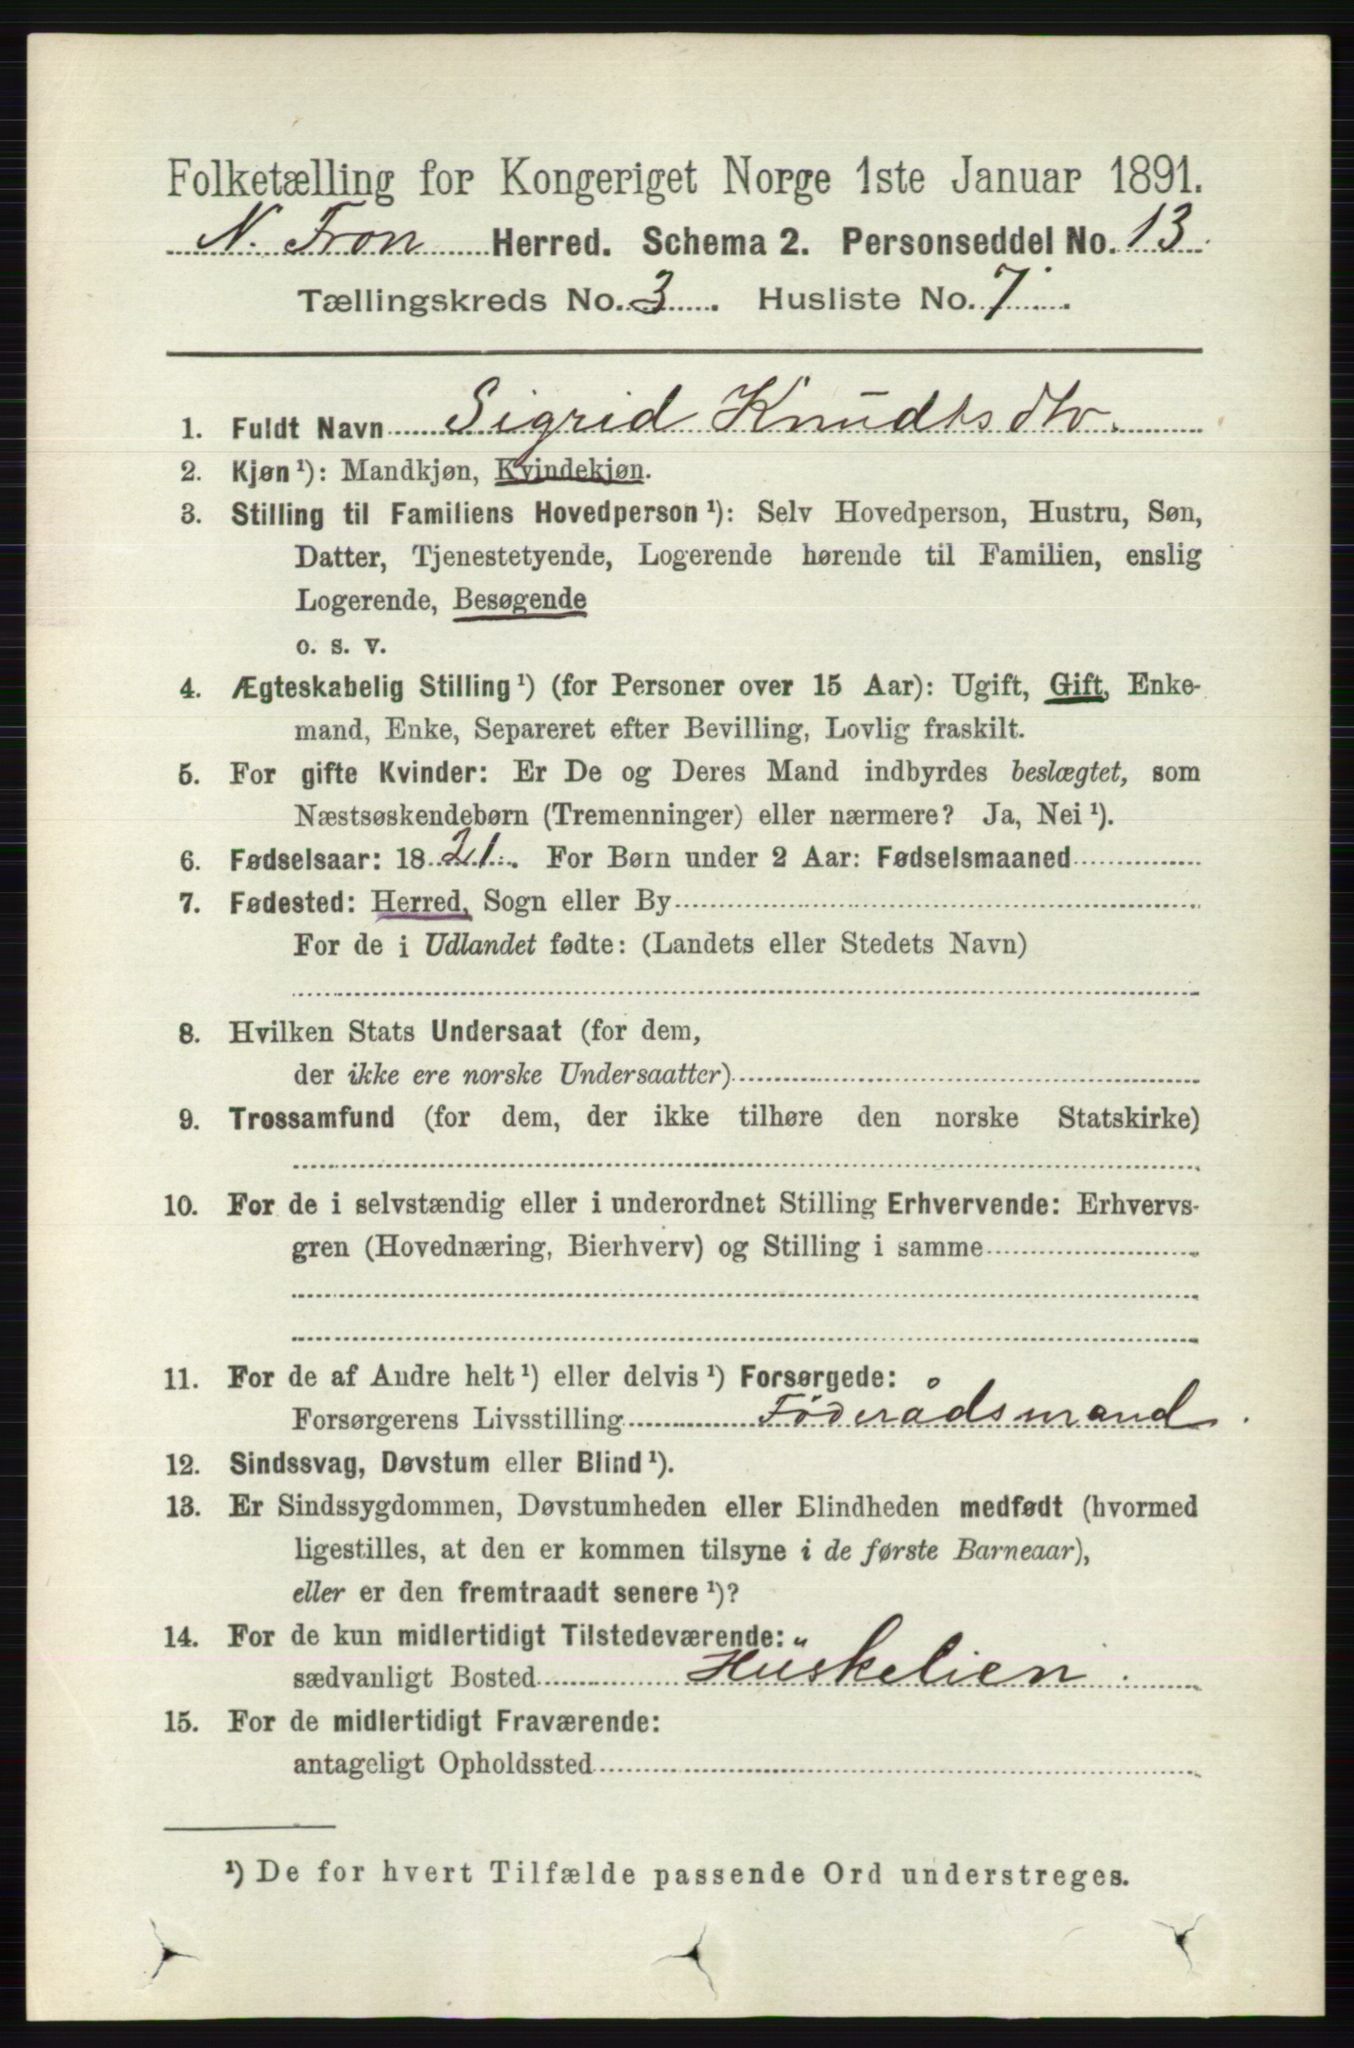 Folketælling for Kongeriget Norge 1ste Januar 1891.
N. Fron Herred. Schema 2. Personseddel No. 13
Tællingskreds No. 3. Husliste No. 7.
1. Fuldt Navn Sigrid Knudtsdtr.
2. Kjøn ¹): Mandkjøn, Kvindekjøn.
3. Stilling til Familiens Hovedperson ¹): Selv Hovedperson, Hustru, Søn,
Datter, Tjenestetyende, Logerende hørende til Familien, enslig
Logerende, Besøgende
o. s. v.
4. Ægteskabelig Stilling ¹) (for Personer over 15 Aar): Ugift, Gift, Enke-
mand, Enke, Separeret efter Bevilling, Lovlig fraskilt.
5. For gifte Kvinder: Er De og Deres Mand indbyrdes beslægtet, som
Næstsøskendebørn (Tremenninger) eller nærmere? Ja, Nei ¹).
6. Fødselsaar: 1821. For Børn under 2 Aar: Fødselsmaaned
7. Fødested: Herred, Sogn eller By
For de i Udlandet fødte: (Landets eller Stedets Navn)
8. Hvilken Stats Undersaat (for dem,
der ikke ere norske Undersaatter)
9. Trossamfund (for dem, der ikke tilhøre den norske Statskirke)
10. For de i selvstændig eller i underordnet Stilling Erhvervende: Erhvervs-
gren (Hovednæring, Bierhverv) og Stilling i samme
11. For de af Andre helt ¹) eller delvis ¹) Forsørgede:
Forsørgerens Livsstilling Föderådsmand.
12. Sindssvag, Døvstum eller Blind ¹).
13. Er Sindssygdommen, Døvstumheden eller Blindheden medfødt (hvormed
ligestilles, at den er kommen tilsyne i de første Barneaar),
eller er den fremtraadt senere ¹)?
14. For de kun midlertidigt Tilstedeværende:
sædvanligt Bosted Hüskelien.
15. For de midlertidigt Fraværende:
antageligt Opholdssted
¹) De for hvert Tilfælde passende Ord understreges.